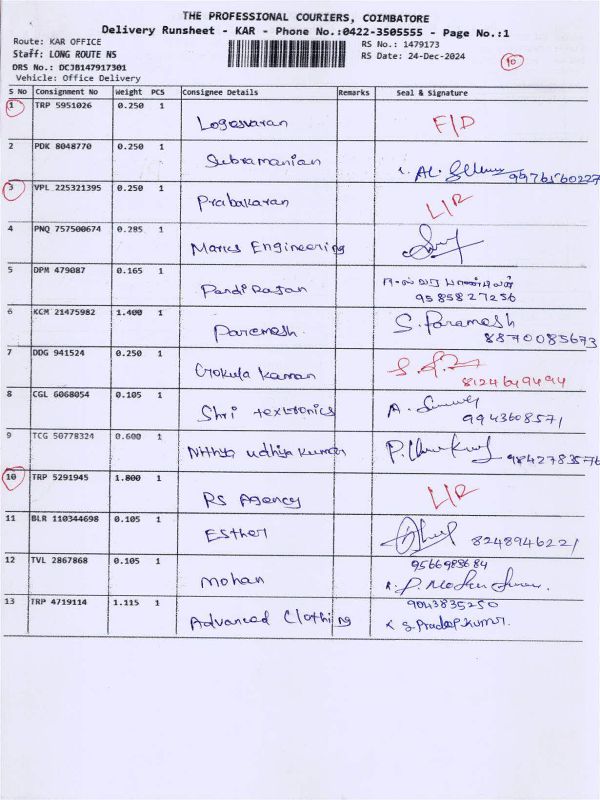 THE PROFESSIONAL COURIERS, COIMBATORE
Delivery Runsheet - KAR - Phone No.:0422-3505555 - Page No.:1
Route: KAR OFFICE RS No.: 1479173
Staff: LONG ROUTE NS RS Date: 24-Dec-2024
DRS No.: DCJB147917301 10
Vehicle: Office Delivery
S No Consignment No Weight PCS Consignee Details Remarks Seal & Signature
1 TRP 5951026 0.250 1 Logesvaran F/D
2 PDK 8048770 0.250 1 Subramanian 9976560227
3 VPL 225321395 0.250 1 Prabakaran L/R
4 PNQ 757500674 0.285 1 Marks Engineering
5 DPM 479087 0.165 1 Pandi Rajan
9585827256
6 KCM 21475982 1.400 1 Paremesh S. Paramesh
8870085673
7 DDG 941524 0.250 1 Gokula Kannan
8124649494
8 CGL 6068054 0.105 1 Shri textronics
9943608571
9 TCG 50778324 0.600 1 Nithya udhiya kumar 9842783576
10 TRP 5291945 1.800 1 RS Agency L/R
11 BLR 110344698 0.105 1 Esther 8248946221
12 TVL 2867868 0.105 1 mohan 9566983684
13 TRP 4719114 1.115 1 Advanced Clothing 9043835250
S. Pradeep Kumar.